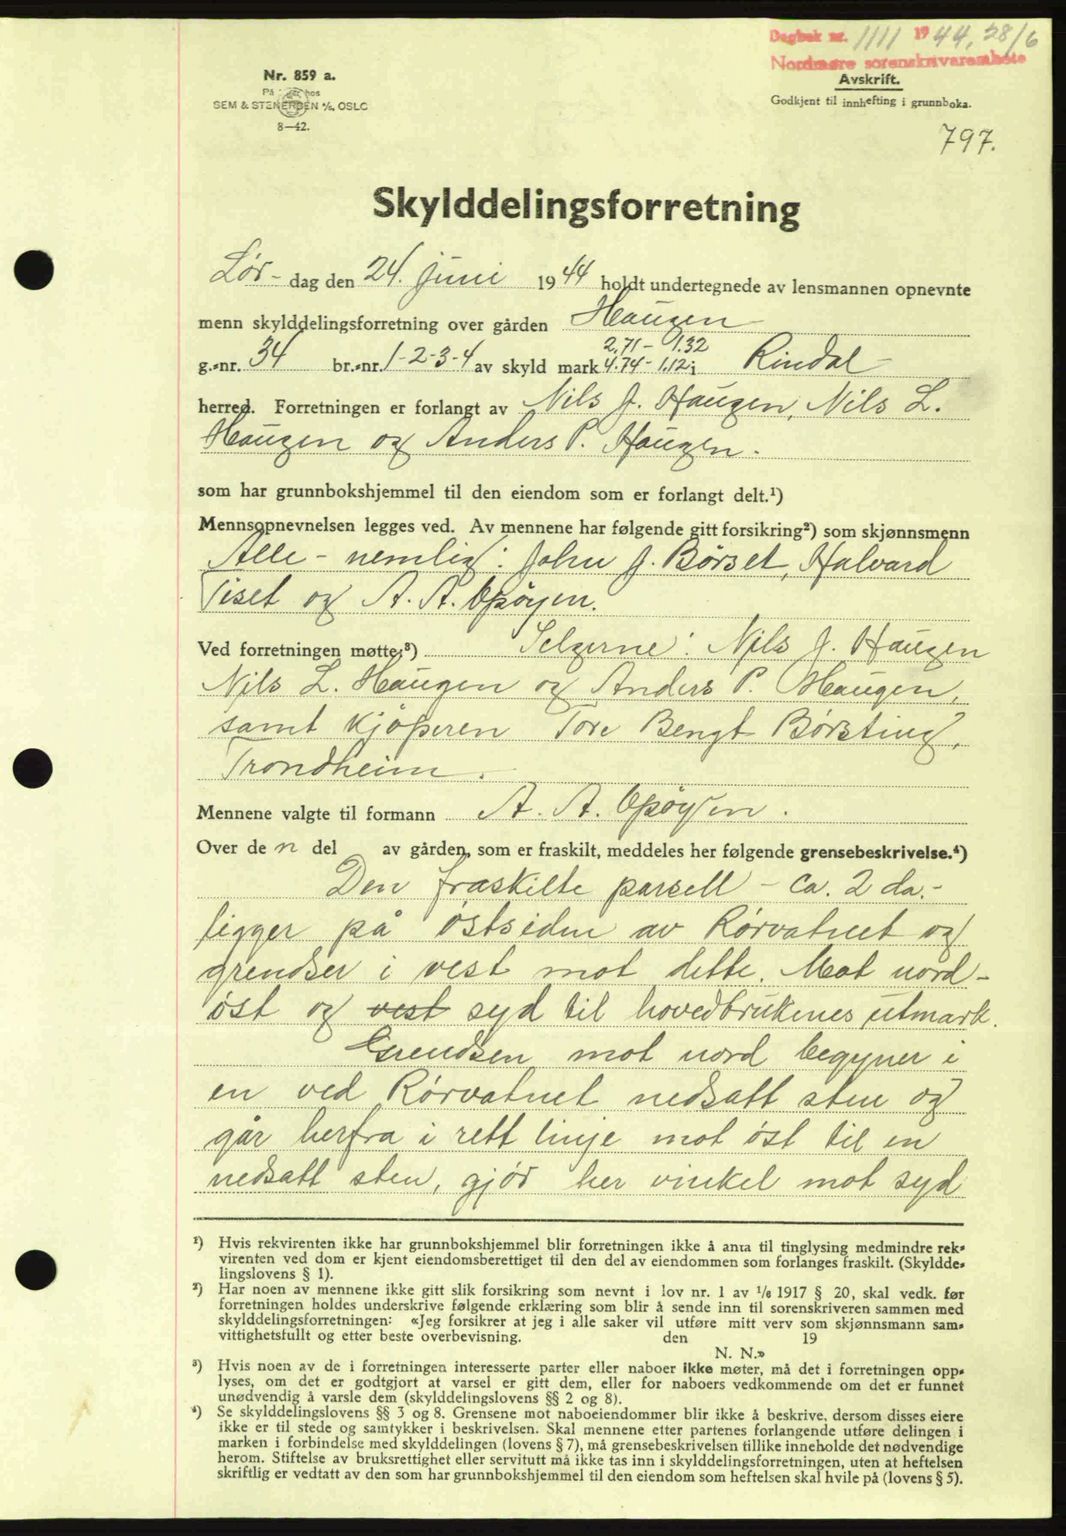 Dagbok nr. 1111 1944, 28/6
Nordmøre sorenskriverembete
Nr. 859 a.
På lager hos
SEM & STENERSEN A/S, OSLO
8—42.
Avskrift.
Godkjent til innhefting i grunnboka.
797.
Skylddelingsforretning
Lør- dag den 24. juni 1944 holdt undertegnede av lensmannen opnevnte
menn skylddelingsforretning over gården Haugen
2,71 - 1.32
g.-nr. 34 br.-nr. 1-2-3-4 av skyld mark 4.74 - 1,12 i Rindal
herred. Forretningen er forlangt av Nils J. Haugen, Nils L.
Haugen og Anders P. Haugen.
som har grunnbokshjemmel til den eiendom som er forlangt delt.¹)
Mennsopnevnelsen legges ved. Av mennene har følgende gitt forsikring²) som skjønnsmenn
Alle - nemlig: John J. Børset, Halvard
Tiset og A. A. Opøyen.
Ved forretningen møtte:³) Selgerne: Nils J. Haugen
Nils L. Haugen og Anders P. Haugen,
samt kjøperen Tore Bengt Børsting,
Trondheim.
Mennene valgte til formann A. A. Opøyen.
Over den del av gården, som er fraskilt, meddeles her følgende grensebeskrivelse.⁴)
Den fraskilte parsell - ca. 2 da. -
ligger på østsiden av Rørvatnet og
grendser i vest mot dette. Mot nord-
øst og vest syd til hovedbrukenes utmark.
Grendsen mot nord begyner i
en ved Rørvatnet nedsatt sten og
går herfra i rett linje mot øst til en
nedsatt sten, gjør her vinkel mot syd
¹) Hvis rekvirenten ikke har grunnbokshjemmel blir forretningen ikke å anta til tinglysing medmindre rek-
virenten ved dom er kjent eiendomsberettiget til den del av eiendommen som forlanges fraskilt. (Skyldde-
lingslovens § 1).
²) Har noen av mennene ikke gitt slik forsikring som nevnt i lov nr. 1 av 1/6 1917 § 20, skal vedk. før
forretningen holdes underskrive følgende erklæring som blir å sende inn til sorenskriveren sammen med
skylddelingsforretningen: «Jeg forsikrer at jeg i alle saker vil utføre mitt verv som skjønnsmann sam-
vittighetsfullt og etter beste overbevisning. den 19
N. N.»
³) Hvis noen av de i forretningen interesserte parter eller naboer ikke møter, må det i forretningen opp-
lyses, om det er godtgjort at varsel er gitt dem, eller for naboers vedkommende om det er funnet
unødvendig å varsle dem (skylddelingslovens §§ 2 og 8).
⁴) Se skylddelingslovens §§ 3 og 8. Grensene mot naboeiendommer blir ikke å beskrive, dersom disses eiere
ikke er til stede og samtykker i beskrivelsen. Skal mennene etter partenes forlangende utføre delingen i
marken i forbindelse med skylddelingen (lovens § 7), må grensebeskrivelsen tillike inneholde det nødvendige
herom. Stiftelse av bruksrettighet eller servitutt må ikke tas inn i skylddelingsforretningen, uten at heftelsen
skriftlig er vedtatt av den som har grunnbokshjemmel til den eiendom som heftelsen skal hvile på (lovens § 5).